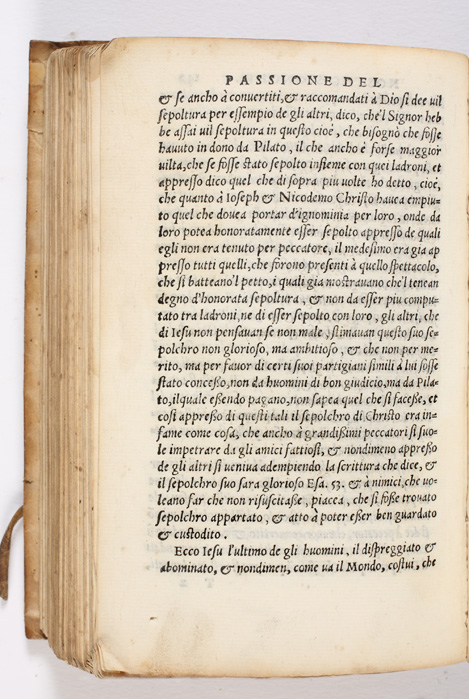 PASSIONE DEL
& se ancho à convertiti, & raccomandati à Dio si dee vil
sepoltura per essempio de gli altri, dico, che'l Signor heb
be assai vil sepoltura in questo cioè, che bisognò che fosse
havuto in dono da Pilato, il che ancho è forse maggior
viltà, che se fosse stato sepolto insieme con quei ladroni, et
appresso dico quel che di sopra piu volte ho detto, cioè,
che quanto à Ioseph & Nicodemo Christo havea empiu-
to quel che dovea portar d'ignominia per loro, onde da
loro potea honoratamente esser sepolto appresso de quali
egli non era tenuto per peccatore, il medesimo era gia ap
presso tutti quelli, che forono presenti à quello spettacolo,
che si batteano'l petto, i quali gia mostravano che'l tenean
degno d'honorata sepoltura, & non da esser piu compu-
tato tra ladroni, ne di esser sepolto con loro, gli altri, che
di Iesu non pensavan se non male, stimavan questo suo se-
polchro non glorioso, ma ambitioso, & che non per me-
rito, ma per favor di certi suoi partigiani simili à lui fosse
stato concesso, non da huomini di bon giudicio, ma da Pila-
to, ilquale essendo pagano, non sapea quel che si facesse, et
così appresso di questi tali il sepolchro di Christo era in-
fame come cosa, che ancho à grandissimi peccatori si suo-
le impetrare da gli amici fattiosi, & nondimeno appresso
de gli altri si veniva adempiendo la scrittura che dice, &
il sepolchro suo sara glorioso Esa. 53. & à nimici, che vo-
leano far che non risuscitasse, piacea, che si fosse trovato
sepolchro appartato, & atto à poter esser ben guardato
& custodito.
Ecco Iesu l'ultimo de gli huomini, il dispreggiato &
abominato, & nondimen, come va il Mondo, costui, che